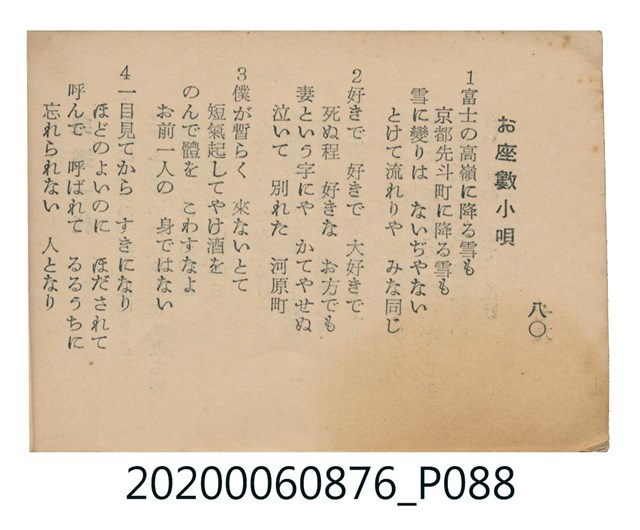 八〇
お座敷小唄
1富士の高嶺に降る雪も
京都先斗町に降る雪も
雪に變りは ないぢやない
とけて流れりや みな同じ
2好きで 好きで 大好きで
死ぬ程 好きな お方でも
妻という字にや かてやせぬ
泣いて 別れた 河原町
3僕が暫らく 來ないとて
短氣起してやけ酒を
のんで體を こわすなよ
お前一人の 身ではない
4一目見てから すきになり
ほどのよいのに ほだされて
呼んで 呼ばれて るるうちに
忘れられない 人となり
20200060876_P088